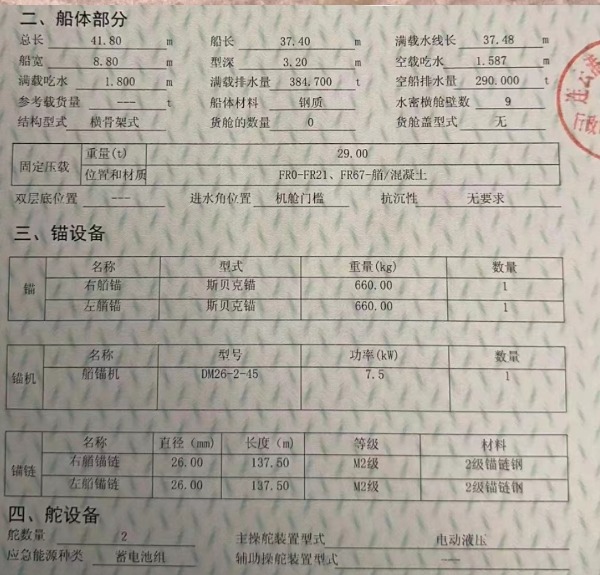 二、船体部分
总长 41.80 m 船长 37.40 m 满载水线长 37.48 m
船宽 8.80 m 型深 3.20 m 空载吃水 1.587 m
满载吃水 1.800 m 满载排水量 384.700 t 空船排水量 290.000 t
参考载货量 --- t 船体材料 钢质 水密横舱壁数 9
结构型式 横骨架式 货舱的数量 0 货舱盖型式 无
固定压载 重量(t) 29.00
位置和材质 FR0-FR21、FR67-艏/混凝土
双层底位置 --- 进水角位置 机舱门槛 抗沉性 无要求
三、锚设备
锚 名称 型式 重量(kg) 数量
右艏锚 斯贝克锚 660.00 1
左艏锚 斯贝克锚 660.00 1
锚机 名称 型号 功率(kW) 数量
船锚机 DM26-2-45 7.5 1
锚链 名称 直径(mm) 长度(m) 等级 材料
右艏锚链 26.00 137.50 M2级 2级锚链钢
左艏锚链 26.00 137.50 M2级 2级锚链钢
四、舵设备
舵数量 2 主操舵装置型式 电动液压
应急能源种类 蓄电池组 辅助操舵装置型式 ---
连云港
行政